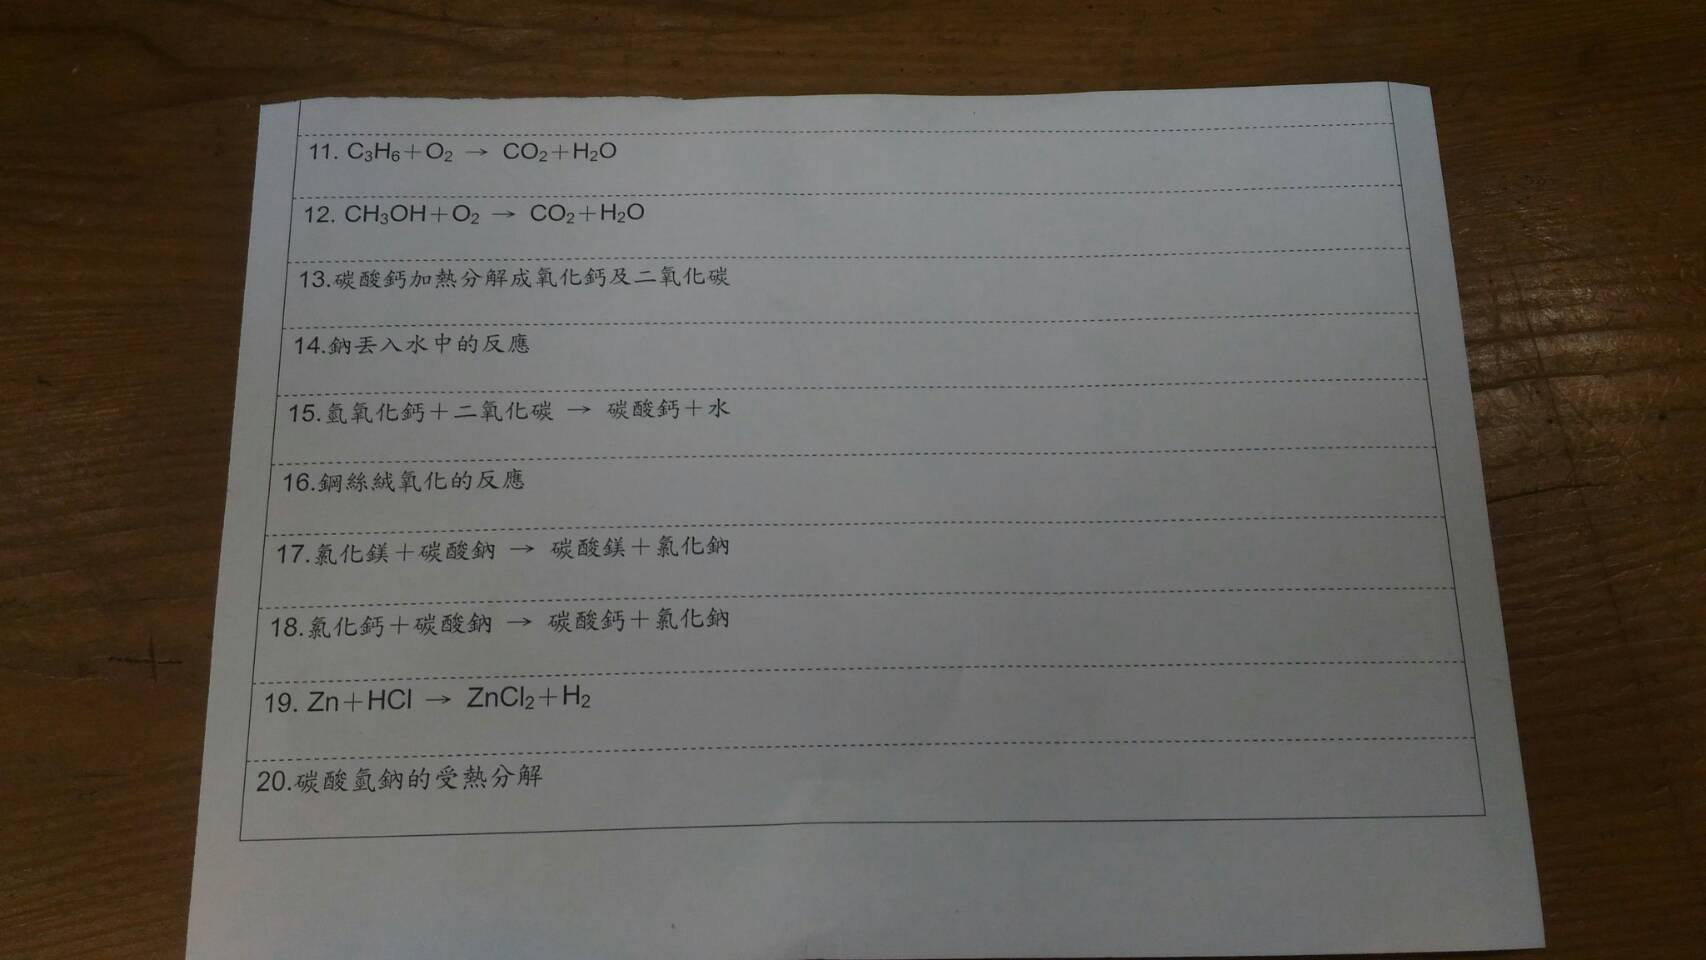 11. C₃H₆+O₂ → CO₂+H₂O
12. CH₃OH+O₂ → CO₂+H₂O
13.碳酸鈣加熱分解成氧化鈣及二氧化碳
14.鈉丟入水中的反應
15.氫氧化鈣+二氧化碳 → 碳酸鈣+水
16.鋼絲絨氧化的反應
17.氯化鎂+碳酸鈉 → 碳酸鎂+氯化鈉
18.氯化鈣+碳酸鈉 → 碳酸鈣+氯化鈉
19. Zn+HCl → ZnCl₂+H₂
20.碳酸氫鈉的受熱分解